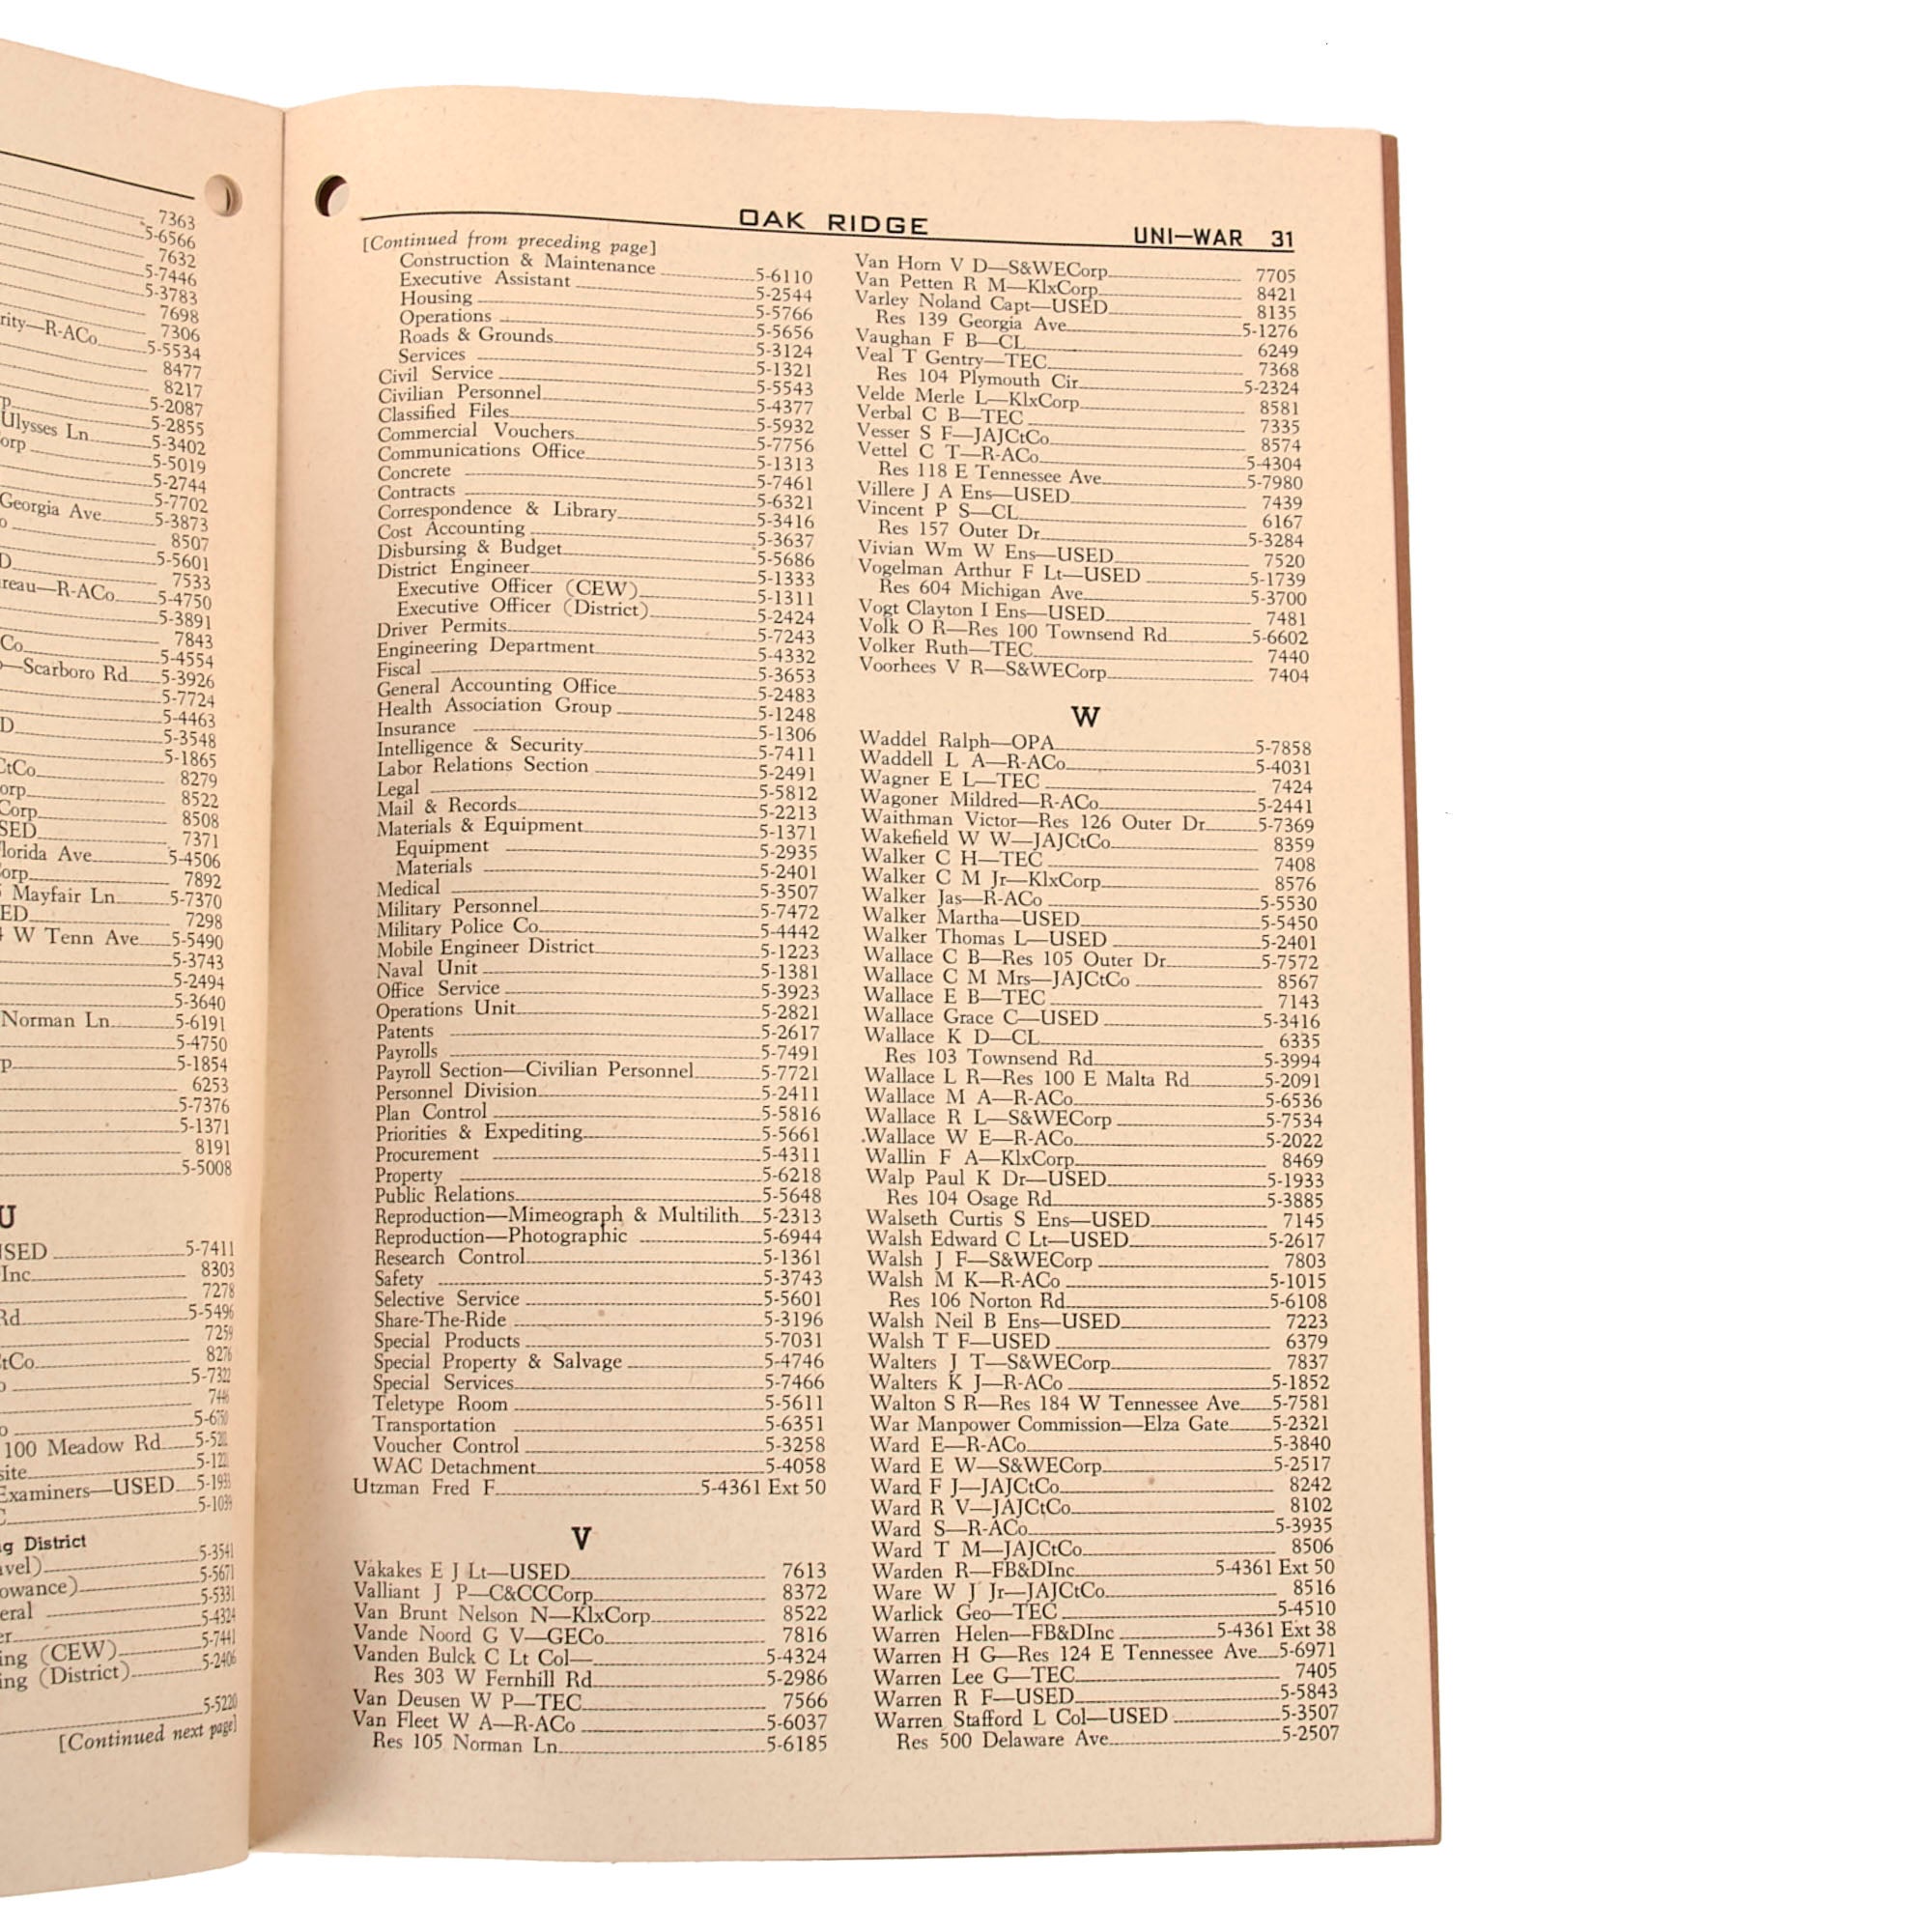 7363
5-6566
7632
5-7446
5-3783
7698
7306
rity—R-ACo 5-5534
8477
8217
5-2087
5-2855
Ulysses Ln 5-3402
orp 5-5019
5-2744
5-7702
Georgia Ave 5-3873
8507
5-5601
7533
reau—R-ACo 5-4750
5-3891
7843
Co 5-4554
—Scarboro Rd 5-3926
5-7724
5-4463
D 5-3548
5-1865
CtCo 8279
orp 8522
Corp 8508
SED 7371
lorida Ave 5-4506
orp 7892
Mayfair Ln 5-7370
ED 7298
4 W Tenn Ave 5-5490
5-3743
5-2494
5-3640
Norman Ln 5-6191
5-4750
p 5-1854
6253
5-7376
5-1371
8191
5-5008
U
SED 5-7411
Inc 8303
7278
Rd 5-5496
7259
tCo 8276
5-7322
100 Meadow Rd
site
Examiners—USED
g District
vel) 5-3541
owance) 5-5671
eral 5-5331
er 5-4324
ing (CEW) 5-7441
ing (District) 5-2406
5-5220
[Continued next page]
OAK RIDGE
UNI—WAR 31
[Continued from preceding page]
Construction & Maintenance 5-6110
Executive Assistant 5-2544
Housing 5-5766
Operations 5-5656
Roads & Grounds 5-3124
Services 5-1321
Civil Service 5-5543
Civilian Personnel 5-4377
Classified Files 5-5932
Commercial Vouchers 5-7756
Communications Office 5-1313
Concrete 5-7461
Contracts 5-6321
Correspondence & Library 5-3416
Cost Accounting 5-3637
Disbursing & Budget 5-5686
District Engineer 5-1333
Executive Officer (CEW) 5-1311
Executive Officer (District) 5-2424
Driver Permits 5-7243
Engineering Department 5-4332
Fiscal 5-3653
General Accounting Office 5-2483
Health Association Group 5-1248
Insurance 5-1306
Intelligence & Security 5-7411
Labor Relations Section 5-2491
Legal 5-5812
Mail & Records 5-2213
Materials & Equipment 5-1371
Equipment 5-2935
Materials 5-2401
Medical 5-3507
Military Personnel 5-7472
Military Police Co 5-4442
Mobile Engineer District 5-1223
Naval Unit 5-1381
Office Service 5-3923
Operations Unit 5-2821
Patents 5-2617
Payrolls 5-7491
Payroll Section—Civilian Personnel 5-7721
Personnel Division 5-2411
Plan Control 5-5816
Priorities & Expediting 5-5661
Procurement 5-4311
Property 5-6218
Public Relations 5-5648
Reproduction—Mimeograph & Multilith 5-2313
Reproduction—Photographic 5-6944
Research Control 5-1361
Safety 5-3743
Selective Service 5-5601
Share-The-Ride 5-3196
Special Products 5-7031
Special Property & Salvage 5-4746
Special Services 5-7466
Teletype Room 5-5611
Transportation 5-6351
Voucher Control 5-3258
WAC Detachment 5-4058
Utzman Fred F 5-4361 Ext 50
V
Vakakes E J Lt—USED 7613
Valliant J P—C&CCCorp 8372
Van Brunt Nelson N—KlxCorp 8522
Vande Noord G V—GECo 7816
Vanden Bulck C Lt Col— 5-4324
Res 303 W Fernhill Rd 5-2986
Van Deusen W P—TEC 7566
Van Fleet W A—R-ACo 5-6037
Res 105 Norman Ln 5-6185
Van Horn V D—S&WECorp 7705
Van Petten R M—KlxCorp 8421
Varley Noland Capt—USED 8135
Res 139 Georgia Ave 5-1276
Vaughan F B—CL 6249
Veal T Gentry—TEC 7368
Res 104 Plymouth Cir 5-2324
Velde Merle L—KlxCorp 8581
Verbal C B—TEC 7335
Vesser S F—JAJCtCo 8574
Vettel C T—R-ACo 5-4304
Res 118 E Tennessee Ave 5-7980
Villere J A Ens—USED 7439
Vincent P S—CL 6167
Res 157 Outer Dr 5-3284
Vivian Wm W Ens—USED 7520
Vogelman Arthur F Lt—USED 5-1739
Res 604 Michigan Ave 5-3700
Vogt Clayton I Ens—USED 7481
Volk O R—Res 100 Townsend Rd 5-6602
Volker Ruth—TEC 7440
Voorhees V R—S&WECorp 7404
W
Waddel Ralph—OPA 5-7858
Waddell L A—R-ACo 5-4031
Wagner E L—TEC 7424
Wagoner Mildred—R-ACo 5-2441
Waithman Victor—Res 126 Outer Dr 5-7369
Wakefield W W—JAJCtCo 8359
Walker C H—TEC 7408
Walker C M Jr—KlxCorp 8576
Walker Jas—R-ACo 5-5530
Walker Martha—USED 5-5450
Walker Thomas L—USED 5-2401
Wallace C B—Res 105 Outer Dr 5-7572
Wallace C M Mrs—JAJCtCo 8567
Wallace E B—TEC 7143
Wallace Grace C—USED 5-3416
Wallace K D—CL 6335
Res 103 Townsend Rd 5-3994
Wallace L R—Res 100 E Malta Rd 5-2091
Wallace M A—R-ACo 5-6536
Wallace R L—S&WECorp 5-7534
Wallace W E—R-ACo 5-2022
Wallin F A—KlxCorp 8469
Walp Paul K Dr—USED 5-1933
Res 104 Osage Rd 5-3885
Walseth Curtis S Ens—USED 7145
Walsh Edward C Lt—USED 5-2617
Walsh J F—S&WECorp 7803
Walsh M K—R-ACo 5-1015
Res 106 Norton Rd 5-6108
Walsh Neil B Ens—USED 7223
Walsh T F—USED 6379
Walters J T—S&WECorp 7837
Walters K J—R-ACo 5-1852
Walton S R—Res 184 W Tennessee Ave 5-7581
War Manpower Commission—Elza Gate 5-2321
Ward E—R-ACo 5-3840
Ward E W—S&WECorp 5-2517
Ward F J—JAJCtCo 8242
Ward R V—JAJCtCo 8102
Ward S—R-ACo 5-3935
Ward T M—JAJCtCo 8506
Warden R—FB&DInc 5-4361 Ext 50
Ware W J Jr—JAJCtCo 8516
Warlick Geo—TEC 5-4510
Warren Helen—FB&DInc 5-4361 Ext 38
Warren H G—Res 124 E Tennessee Ave 5-6971
Warren Lee G—TEC 7405
Warren R F—USED 5-5843
Warren Stafford L Col—USED 5-3507
Res 500 Delaware Ave 5-2507